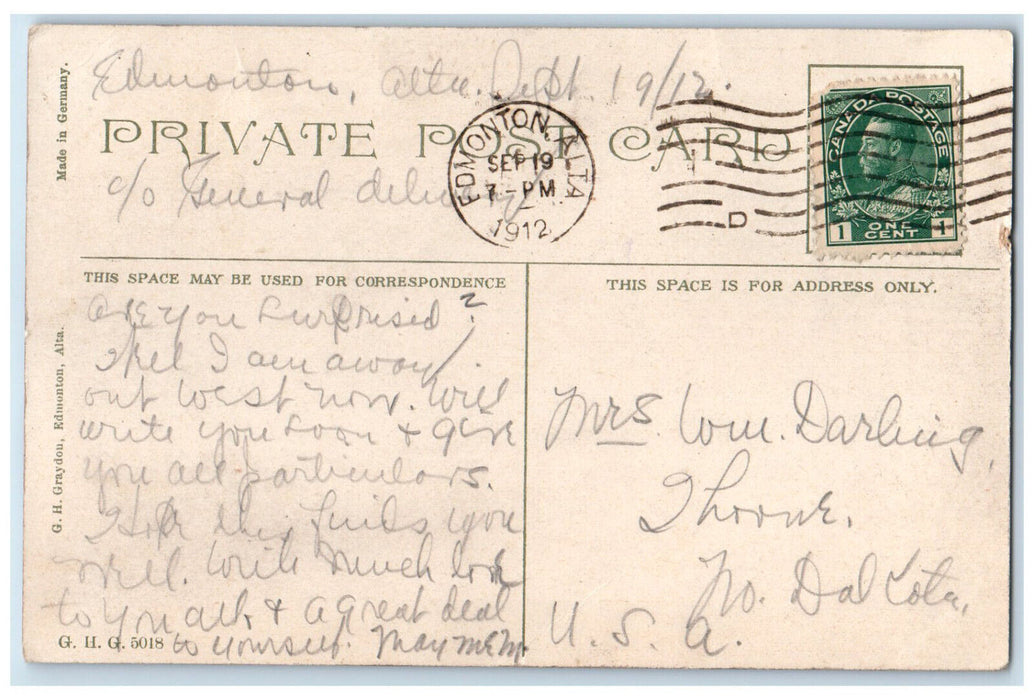 Made in Germany.
Edmonton, Alta. Sept. 19/12.
PRIVATE POST CARD
c/o General delivery
EDMONTON, ALTA
SEP 19
7 - PM
1912
D
CANADA POSTAGE
1 ONE CENT 1
THIS SPACE MAY BE USED FOR CORRESPONDENCE
THIS SPACE IS FOR ADDRESS ONLY.
G. H. Graydon, Edmonton, Alta.
Are you surprised?
Well I am away
out west now. Will
write you soon & give
you all particulars.
Hope this finds you
well. With much love
to you all & a great deal
to yourself. May McM.
G. H. G. 5018
Mrs. Wm. Darling,
No. Dakota,
U. S. A.